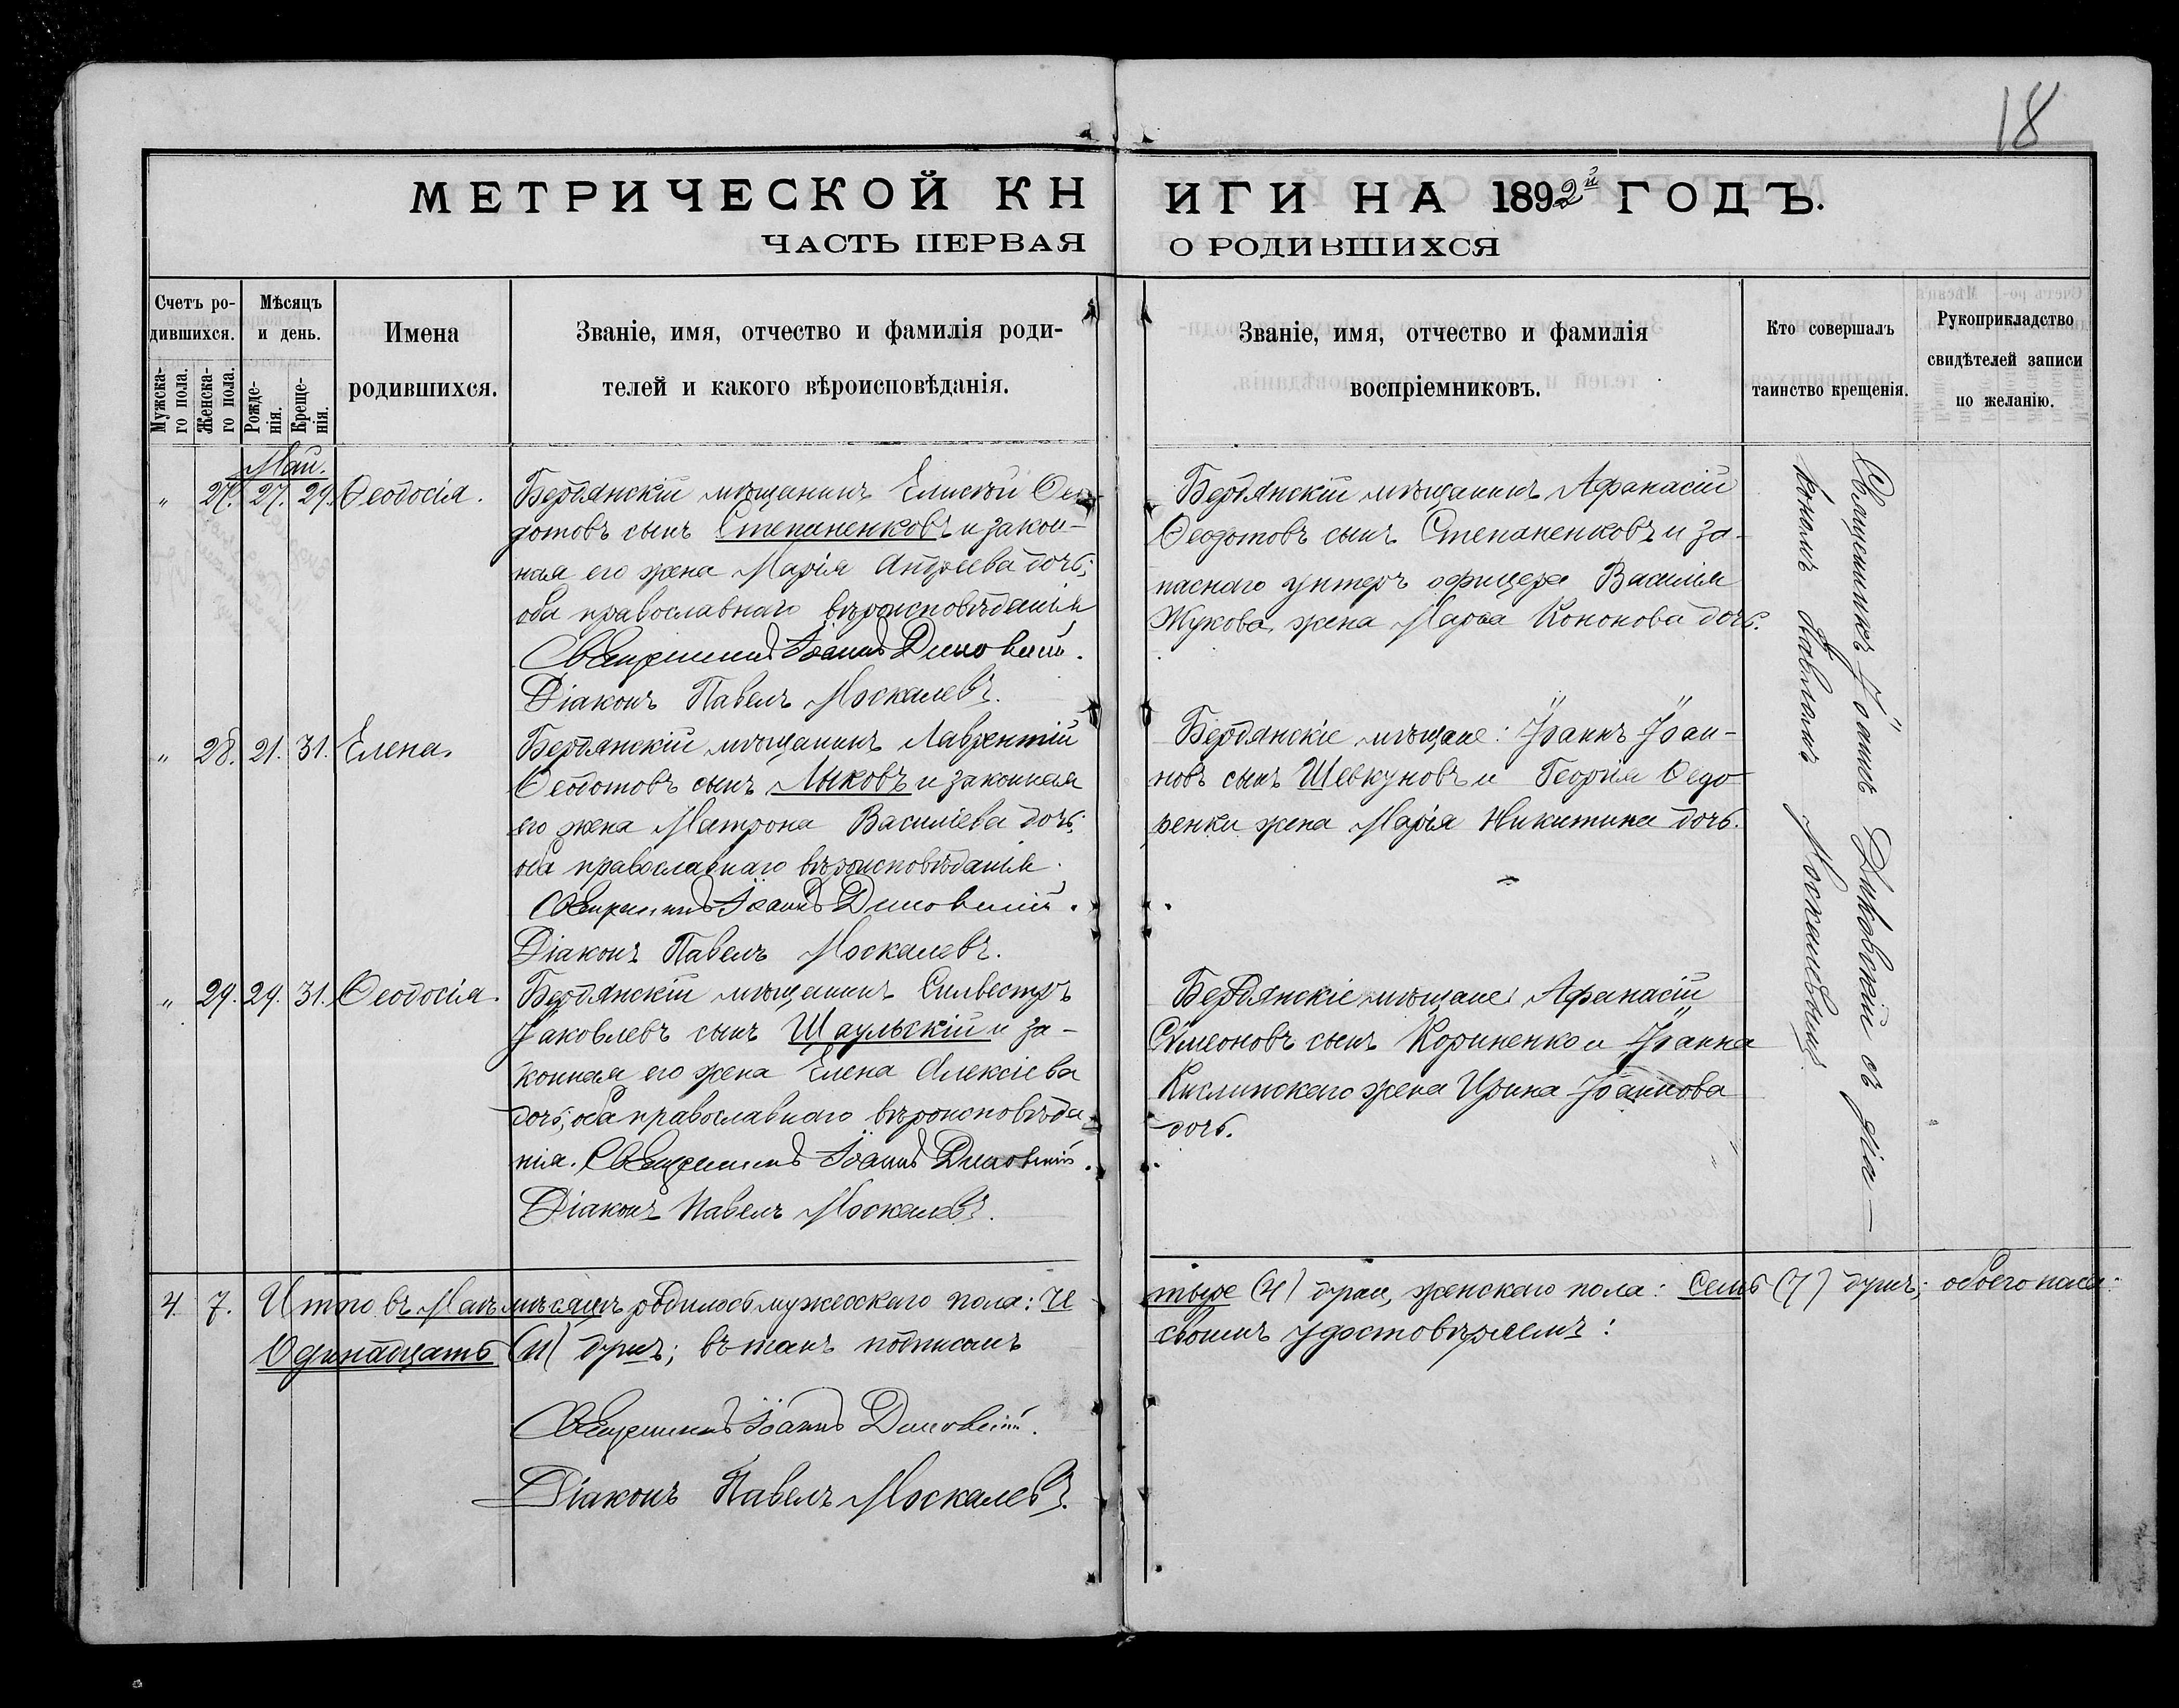 18
МЕТРИЧЕСКОЙ КНИГИ НА 1892й ГОДЪ.
ЧАСТЬ ПЕРВАЯ О РОДИВШИХСЯ
Счетъ ро-
дившихся.
Мужска-
го пола.
Женска-
го пола.
Мѣсяцъ
и день.
Рожде-
нія.
Креще-
нія.
Имена
родившихся.
Званіе, имя, отчество и фамилія роди-
телей и какого вѣроисповѣданія.
Званіе, имя, отчество и фамилія
воспріемниковъ.
Кто совершалъ
таинство крещенія.
Рукоприкладство
свидѣтелей записи
по желанію.
Май.
„ 27. 27. 29. Ѳеодосія.
Бердянскій мѣщанинъ Елисей Ѳео-
дотовъ сынъ Степаненковъ и закон-
ная его жена Марія Андреева дочь;
оба православнаго вѣроисповѣданія
Священникъ Іоаннъ Диковскій.
Діаконъ Павелъ Москалевъ.
Бердянскій мѣщанинъ Афанасій
Ѳеодотовъ сынъ Степаненковъ и за-
паснаго унтеръ офицера Василія
Жукова жена Марѳа Кононова дочь.
„ 28. 21. 31. Елена.
Бердянскій мѣщанинъ Лаврентій
Ѳеодотовъ сынъ Лыковъ и законная
его жена Матрона Василіева дочь;
оба православнаго вѣроисповѣданія.
Священникъ Іоаннъ Диковскій.
Діаконъ Павелъ Москалевъ.
Бердянскіе мѣщане: Іоаннъ Іоан-
новъ сынъ Шевкуновъ и Георгія Ѳедо-
ренки жена Марія Никитина дочь.
„ 29. 29. 31. Ѳеодосія.
Бердянскій мѣщанинъ Сильвестръ
Іаковлевъ сынъ Шаульскій и за-
конная его жена Елена Алексіева
дочь; оба православнаго вѣроисповѣда-
нія. Священникъ Іоаннъ Диковскій.
Діаконъ Павелъ Москалевъ.
Бердянскіе мѣщане: Афанасій
Симеоновъ сынъ Кориненко и Іоанна
Кислинскаго жена Ирина Іоаннова
дочь.
Священникъ Іоаннъ Диковскій съ діа-
кономъ Павломъ Москалевымъ
4. 7. Итого въ Маѣ мѣсяцѣ родилось мужескаго пола: че
тыре (4) души, женскаго пола: семь (7) душъ; обоего пола:
Одинадцать (11) душъ; въ томъ подписомъ
своимъ удостовѣряемъ:
Священникъ Іоаннъ Диковскій.
Діаконъ Павелъ Москалевъ.